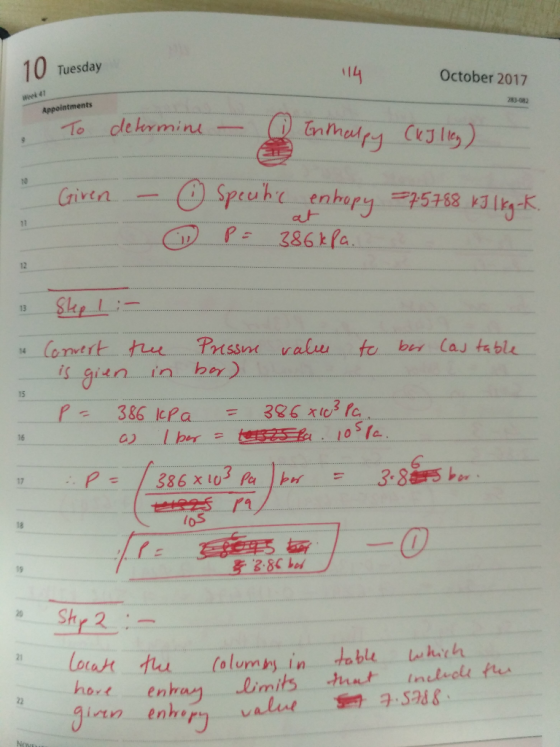 10 Tuesday
114
October 2017
Week 41
283-082
Appointments
9 To determine — (i) Enthalpy (kJ/kg)
10 Given — (i) Specific entropy = 7.5788 kJ/kg-K.
at
11 (ii) P = 386 kPa.
12
13 Step 1 :-
14 Convert the Pressure value to bar (as table
is given in bar)
15 P = 386 KPa = 386 ×10³ Pa.
16 as 1 bar = 10⁵ Pa.
17 ∴ P = (386 ×10³ Pa / 10⁵ Pa) bar = 3.86 bar.
18
∴ P = 3.86 bar — (1)
19
20 Step 2 :-
21 Locate the columns in table which
have entray limits that include the
22 given entropy value 7.5788.